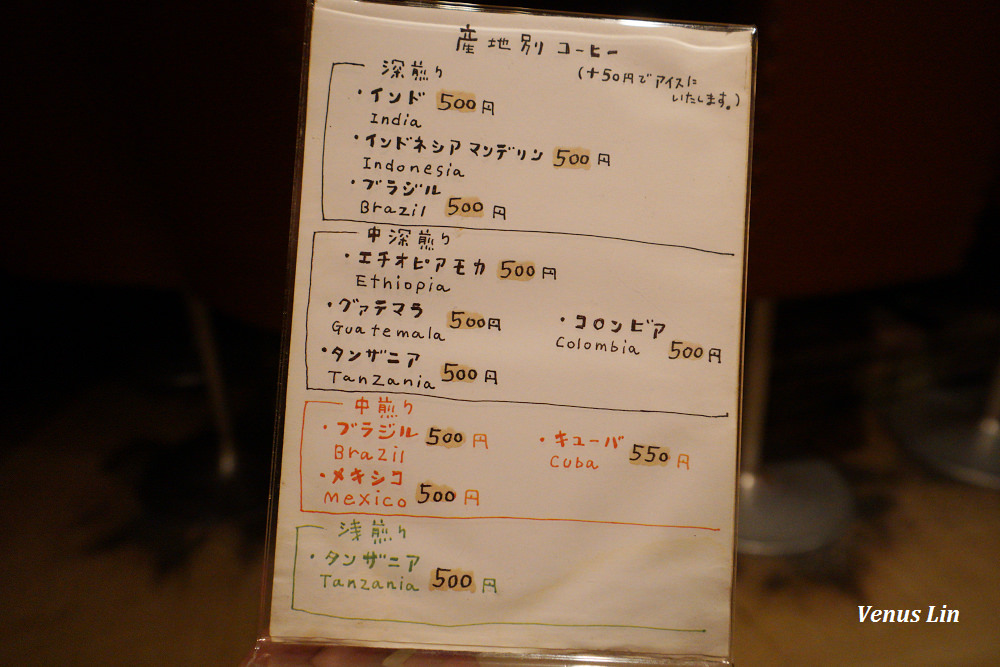 産地別 コーヒー
(+50円でアイスに
いたします。)
深煎り
・インド 500円
India
・インドネシア マンデリン 500円
Indonesia
・ブラジル
Brazil 500円
中深煎り
・エチオピアモカ 500円
Ethiopia
・グァテマラ 500円
Guatemala
・コロンビア
Colombia 500円
・タンザニア
Tanzania 500円
中煎り
・ブラジル 500円
Brazil
・キューバ 550円
Cuba
・メキシコ
mexico 500円
浅煎り
・タンザニア
Tanzania 500円
Venus Lin